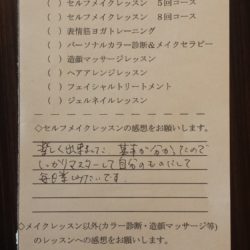 ( ) セルフメイクレッスン 5回コース
( ) セルフメイクレッスン 8回コース
( ) 表情筋ヨガトレーニング
( ) パーソナルカラー診断&メイクセラピー
( ) 造顔マッサージレッスン
( ) ヘアアレンジレッスン
( ) フェイシャルトリートメント
( ) ジェルネイルレッスン
◇セルフメイクレッスンの感想をお願いします。
楽しく出来ました。 基本が分かったので
しっかりマスターして自分のものにして
毎日楽しみたいです。
◇メイクレッスン以外(カラー診断・造顔マッサージ等)
のレッスンへの感想をお願いします。